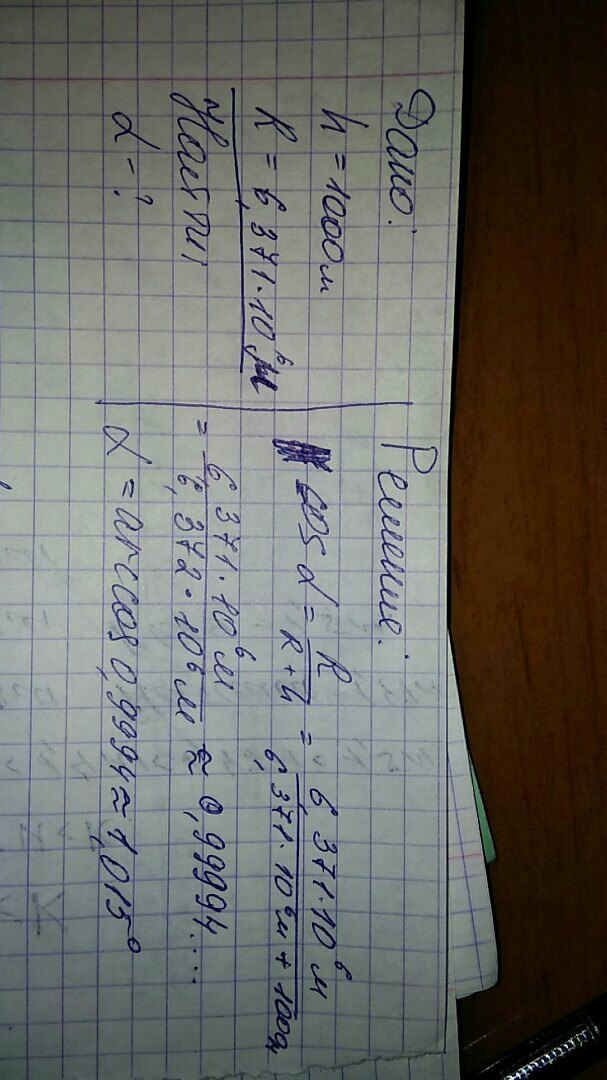 Дано:
h = 1000 м
R = 6,371·10⁶ м
Найти:
α - ?
Решение:
cos α = R / (R + h) = 6,371·10⁶ м / (6,371·10⁶ м + 1000) =
= 6,371·10⁶ м / (6,372·10⁶ м) ≈ 0,99994....
α = arccos 0,9994 ≈ 1,015°